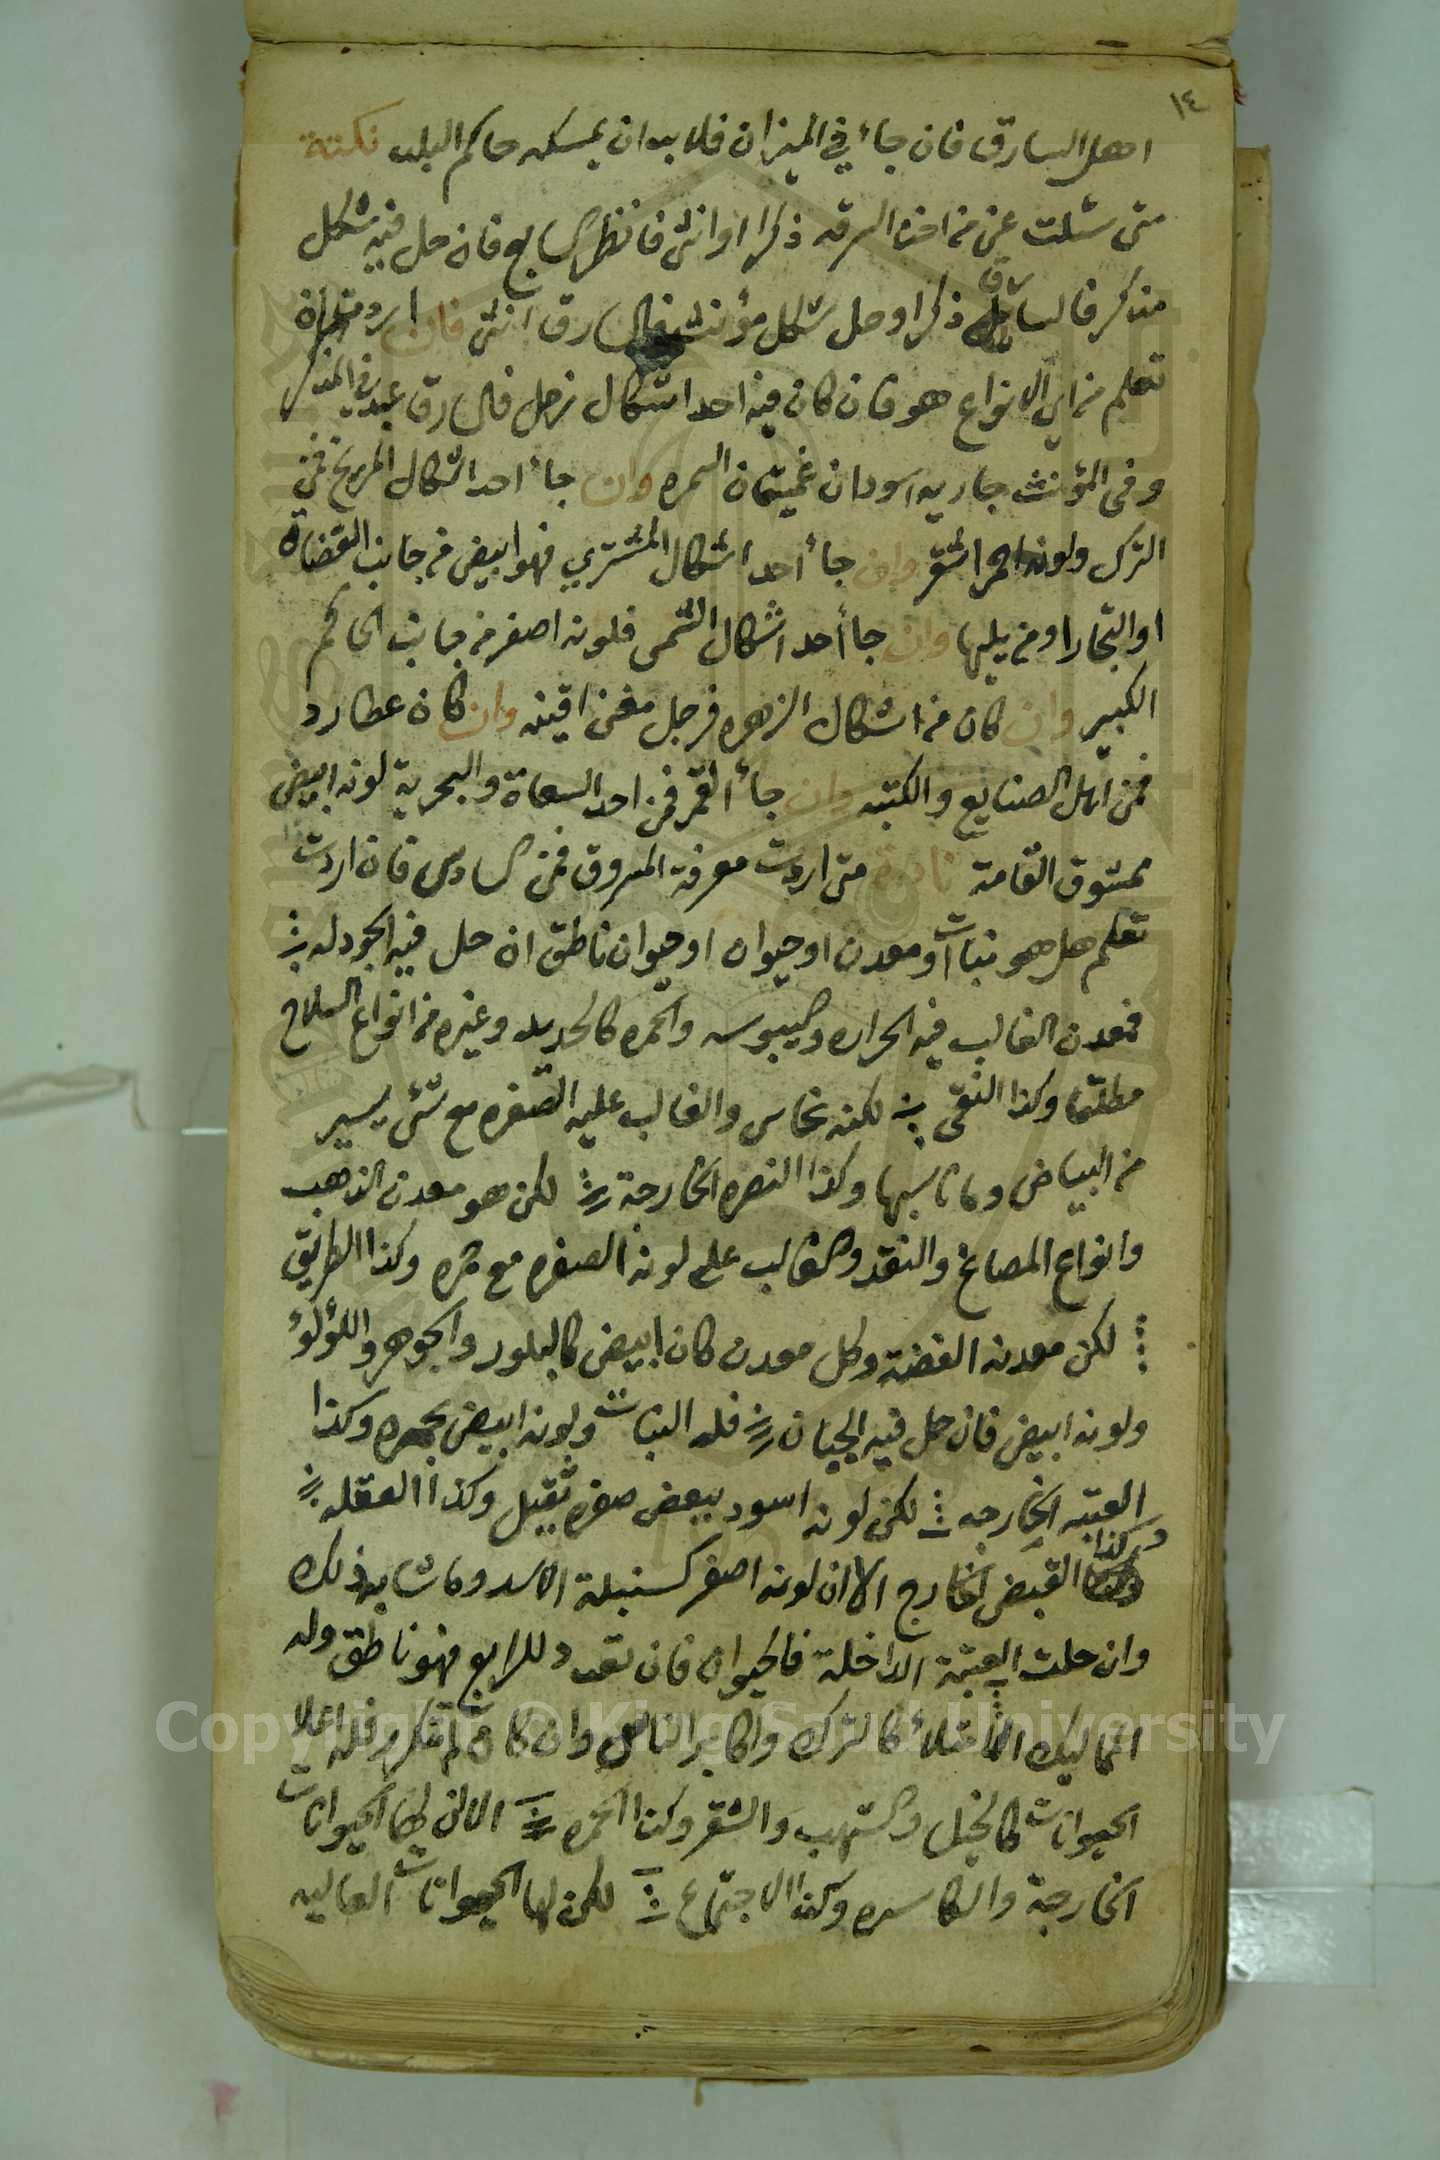 ١٤
اهل السارق فان جاء في الميزان فلا بد ان يمسكه حاكم البلد نكتة
متى سئلت عن من اخذ السرقه ذكرا او انثى فانظر السابع فان حل فيه شكل
مذكر فالسارق ذكرا او حل شكل مؤنث فالسارق انثى فان اردت
تعلم من اي الانواع هو فان كان فيه احد اشكال زحل فالسارق عبد في المذكر
وفي المؤنث جاريه اسودان غميقان السمره وان جاء احد اشكال المريخ فمن
الترك ولونه احمر اشقر وان جاء احد اشكال المشتري فهو ابيض من جانب القضاة
او التجار او من يليها وان جاء احد اشكال الشمس فلونه اصفر من جانب الحاكم
الكبير وان كان من اشكال الزهره فرجل مغني او قينه وان كان عطارد
فمن اهل الصنايع والكتبه وان جاء القمر فمن احد السعاة والبحرية لونه ابيض
ممشوق القامة متى اردت معرفة المسروق فمن السادس فان اردت
تعلم هل هو نبات او معدن او حيوان او حيوان ناطق ان حل فيه الجودله
فمعدن الغالب فيه الحراره واليبوسه والحمره كالحديد وغيره من انواع السلاح
مطلقا وكذا النقي لكنه نحاس والغالب عليه الصفره مع شئ يسير
من البياض وما ناسبها وكذا النصره الخارجة لكن هو معدن الذهب
وانواع المصاغ والنقد والغالب على لونه الصفره مع حمره وكذا الطريق
لكن معدنه الفضة وكل معدن كان ابيض كالبلور والجوهر واللؤلؤ
ولونه ابيض فان حل فيه الحيان فله النبات ولونه ابيض بحمره وكذا
العتبه الخارجه لكن لونه اسود ببعض صفره ثقيل وكذا العقله
وكذا القبض الخارج الا ان لونه اصفر كسنبلة الاسد وما شابه ذلك
وان حلت العتبة الداخلة فالحيوان فان تعدد للرابع فهو ناطق وله
المماليك كالترك واكابر الناس وان كان لم تتكرر فله اعلا
الحيوانات كالخيل والشهب والشقر وكذا الحمره الا ان لها الحيوانات
الخارجة والكاسره وكذا الاجتماع لكن لها الحيوانات العاليه
Copyright © King Saud University